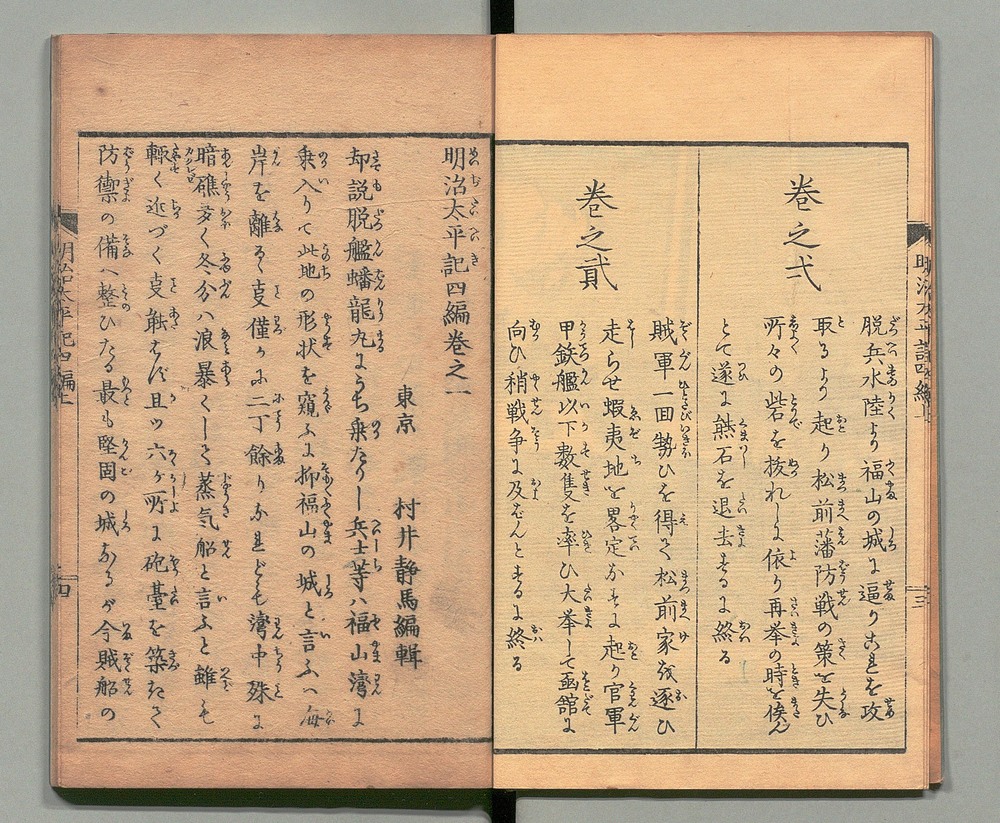 巻之弌
脱兵水陸より福山の城に逼りこれを攻
取るより起り松前藩防戦の策を失ひ
所々の砦を抜れしに依り再挙の時を俟ん
とて遂に熊石を退去するに終る
巻之貳
賊軍一回勢ひを得て松前家を逐ひ
走らせ蝦夷地を畧定なすに起り官軍
甲鉄艦以下数隻を率ひ大挙して凾館に
向ひ稍戦争に及ばんとするに終る
明治太平記四編巻之一
東京 村井静馬編輯
却説脱艦蟠龍丸にうち乗たりし兵士等ハ福山湾に
乗入りて此地の形状を窺ふに抑福山の城と言ふハ海
岸を離るゝ支僅かに二丁餘りなれども湾中殊に
暗礁多く冬分ハ浪暴くして蒸気船と言ふと雖も
輙く近づく支能はず且ツ六ヶ所に砲臺を築たて
防禦の備へ整ひたる最も堅固の城なるが今賊船の
明治太平記四編上
三
明治太平記四編上
四